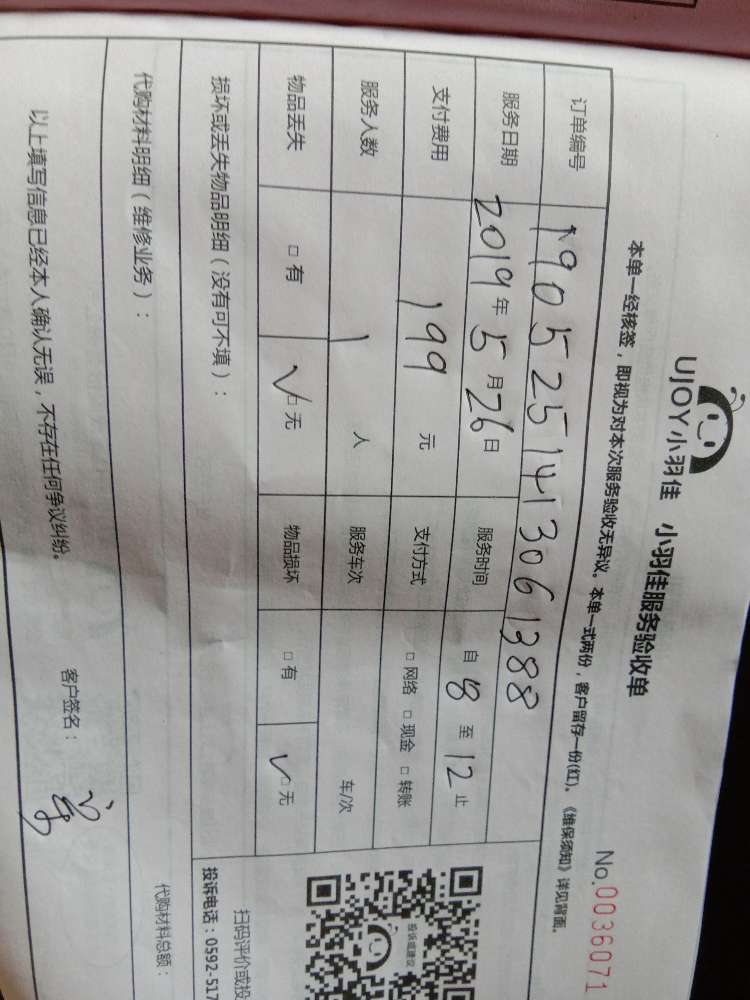 UJOY小羽佳 小羽佳服务验收单
No.0036071
本单一经核签，即视为对本次服务验收无异议。本单一式两份，客户留存一份(红)。《维保须知》详见背面。
订单编号 1905251413061388
服务日期 2019年5月26日 服务时间 自8至12止
支付费用 199元 支付方式 □网络 □现金 □转账
服务人数 1人 服务车次 车/次
物品丢失 □有 ✓□无 物品损坏 □有 ✓□无
损坏或丢失物品明细（没有可不填）：
代购材料明细（维修业务）：
代购材料总额：
以上填写信息已经本人确认无误，不存在任何争议纠纷。
客户签名：
投诉或建议
扫码评价或投
投诉电话：0592-517